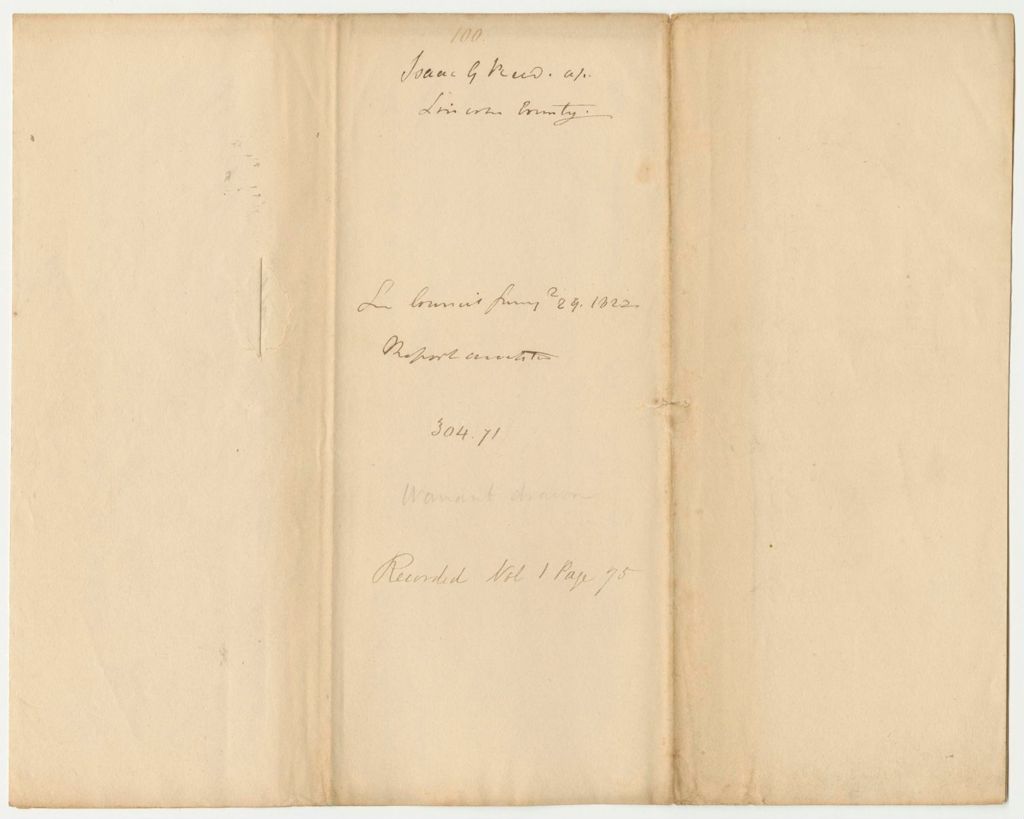 100.
Isaac G Reed. a/c.
Lincoln County.
In Council Jany 29. 1822.
Report accepted
304.71
Warrant drawn
Recorded Vol 1 Page 75